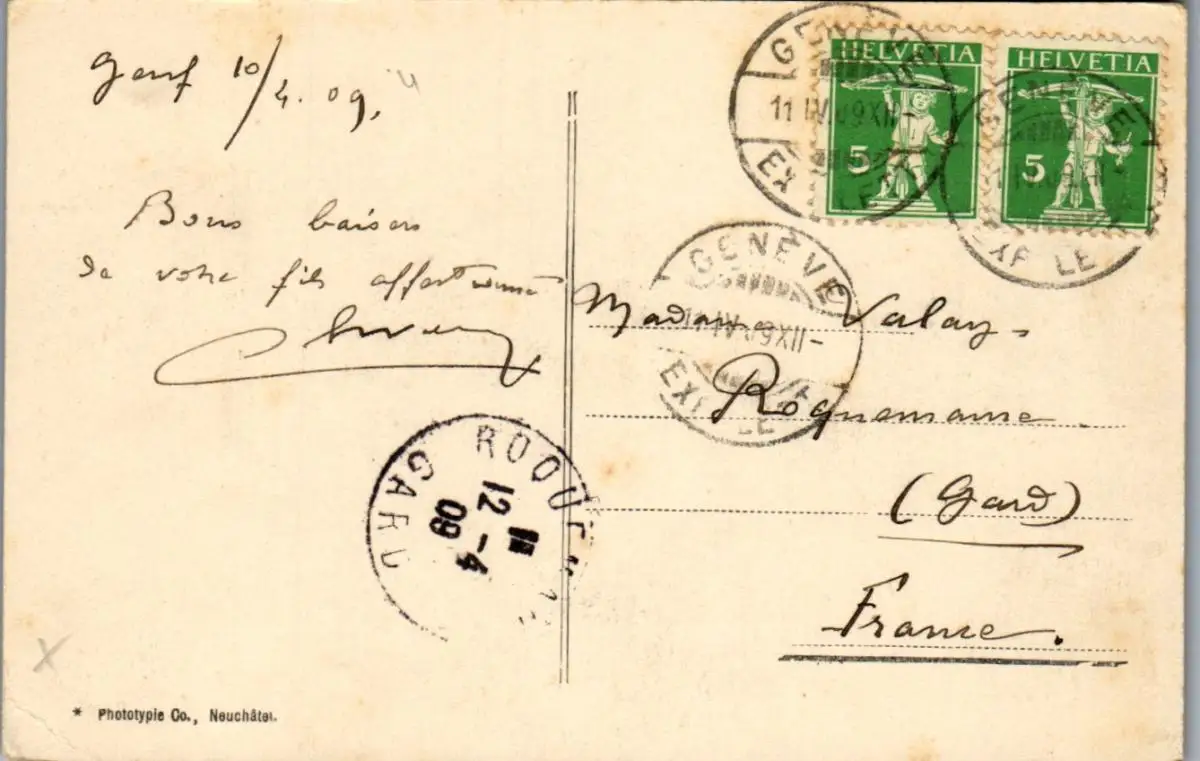 Genf 10/4.09.
Bons baisers
de votre fils affectionné
HELVETIA
5
HELVETIA
5
GENÈVE
11 IV 09 XII -
EXP. LE
GENÈVE
EXP LE
GENÈVE
11 IV 09 XII -
EXP. LE
Madame Valay
Roquemaure
(Gard)
France.
GARD
12 - 4
09
* Phototypie Co., Neuchâtel.